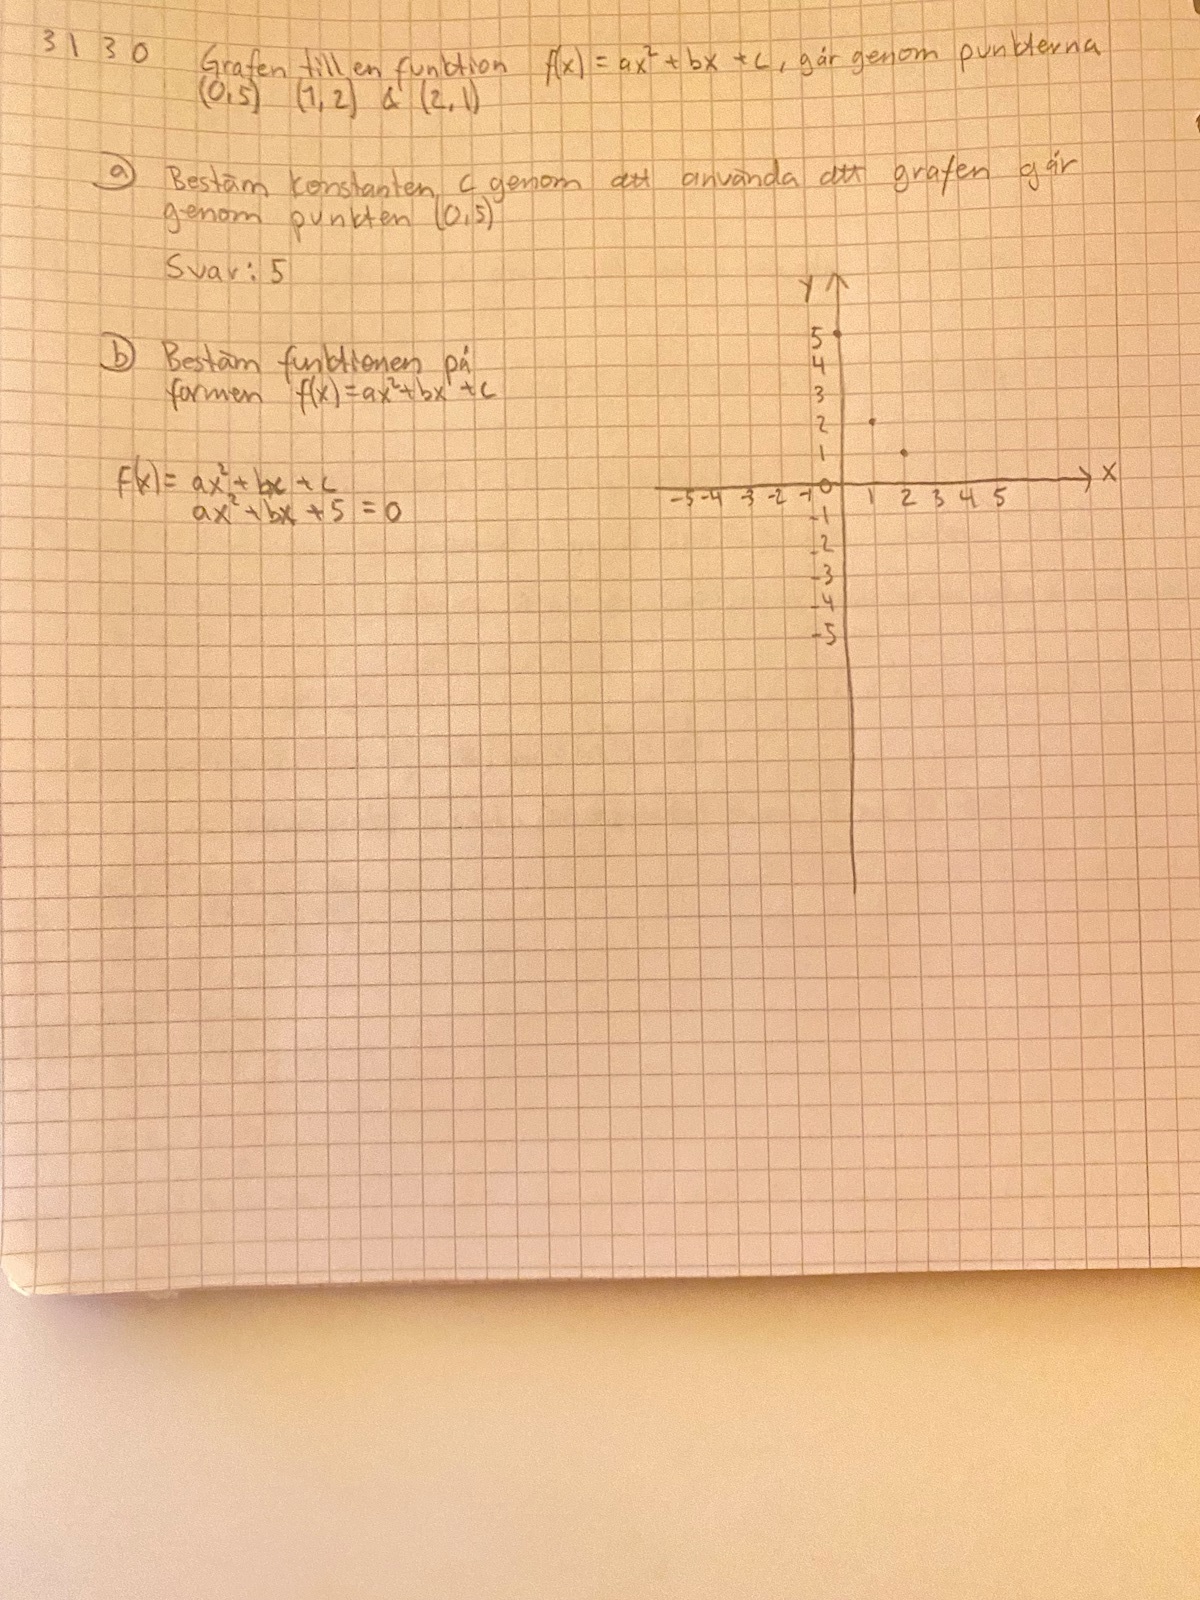 3130 Grafen till en funktion f(x) = ax² + bx + c, går genom punkterna
(0,5) (1,2) & (2,1)
a) Bestäm konstanten c genom att använda att grafen går
genom punkten (0,5)
Svar: 5
b) Bestäm funktionen på
formen f(x)=ax²+bx+c
f(x)= ax²+bx+c
ax²+bx+5=0
y
5
4
3
2
1
-5 -4 -3 -2 -1 0 1 2 3 4 5 x
-1
-2
-3
-4
-5